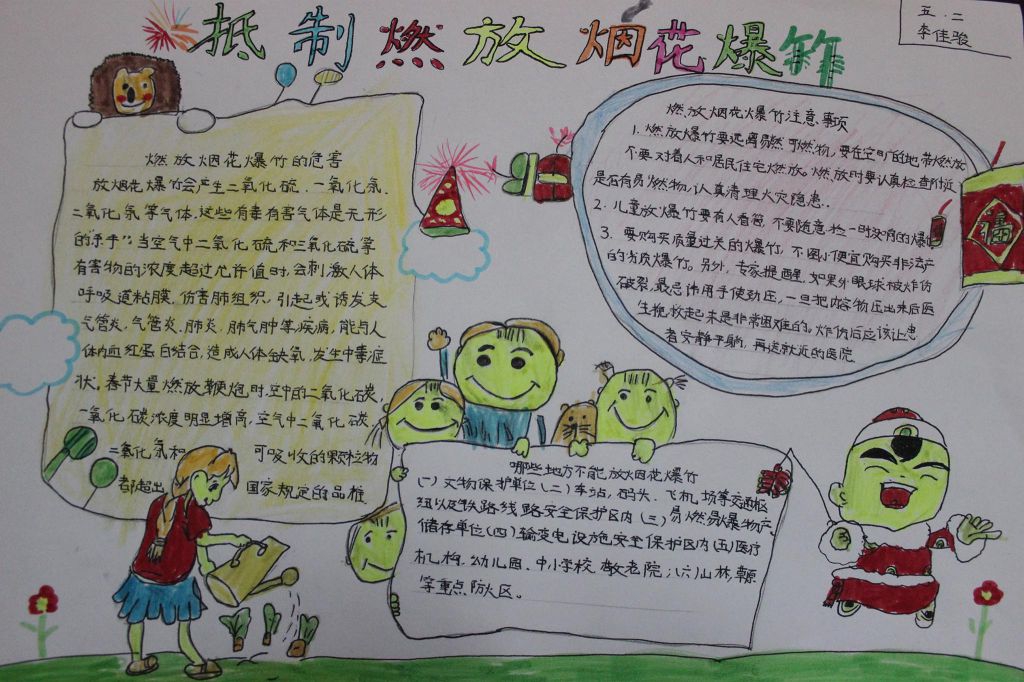 抵制燃放烟花爆竹
五.二
李佳骏
燃放烟花爆竹的危害
放烟花爆竹会产生二氧化硫.一氧化氮.
二氧化氮等气体.这些有毒有害气体是无形
的"杀手";当空气中二氧化硫和三氧化硫等
有害物的浓度超过允许值时,会刺激人体
呼吸道粘膜,伤害肺组织,引起或诱发支
气管炎,气管炎,肺炎,肺气肿等疾病,能与人
体内血红蛋白结合,造成人体缺氧,发生中毒症
状.春节大量燃放鞭炮时,空中的二氧化碳,
一氧化碳浓度明显增高,空气中二氧化碳.
二氧化氮和可吸收的颗粒物
都超出国家规定的品

燃放烟花爆竹注意事项
1.燃放爆竹要远离易燃可燃物,要在空旷的地带燃放
不要对着人和居民住宅燃放。燃放时要认真检查附近
是否有易燃物,认真清理火灾隐患..
2.儿童放爆竹要有人看管,不要随意捡一时没响的爆竹
3.要购买质量过关的爆竹,不图小便宜购买非法产
的劣质爆竹。另外,专家提醒,如果外眼球被炸伤
破裂,最忌讳用手使劲压,一旦把内容物压出来后医
生挽救起来是非常困难的,炸伤后应该让患
者安静平躺,再送就近的医院
福
哪些地方不能放烟花爆竹
(一)文物保护单位(二)车站,码头、飞机场等交通枢
纽以及铁路线路安全保护区内(三)易燃易爆物产
储存单位(四)输变电设施安全保护区内(五)医疗
机构.幼儿园.中小学校.敬老院;(六)山林,
等重点防火区。